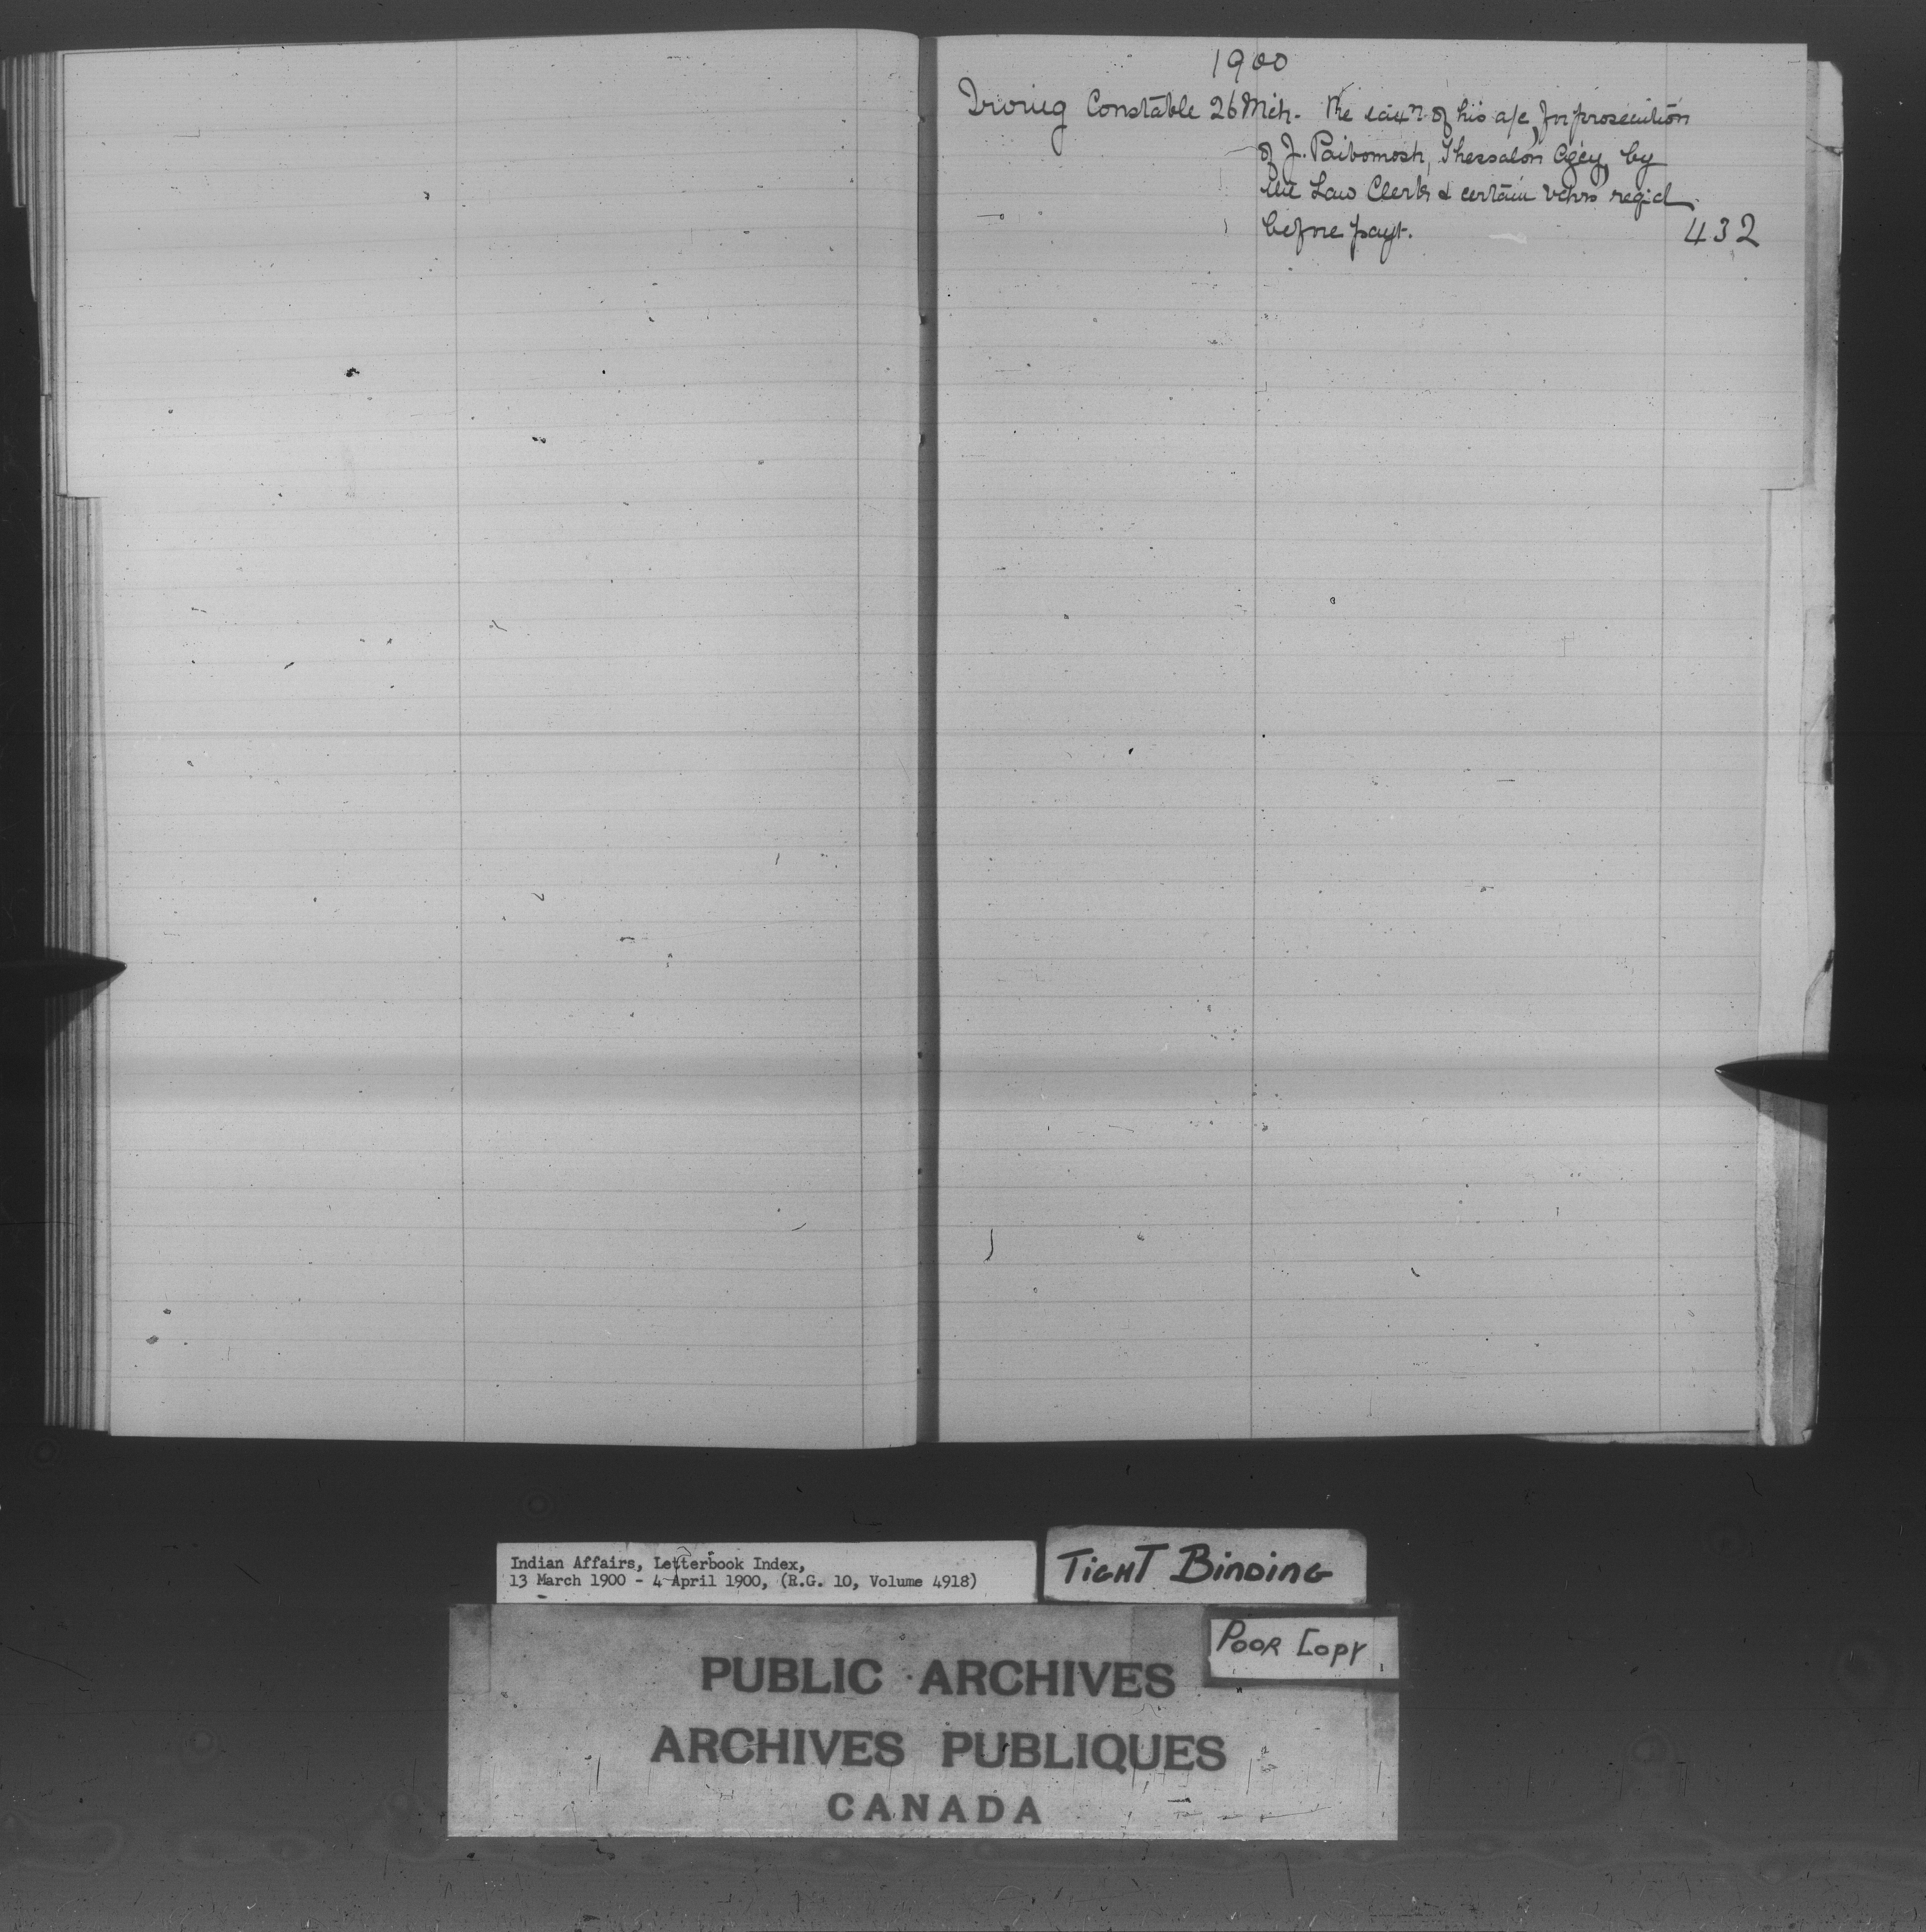 1900
Irving Constable 26 Mch. Re taxn of his a/c, for prosecution
of J. Paibomosh, Thessalon Agcy, by
the Law Clerk & certain vchrs reqd
before payt. 432
Indian Affairs, Letterbook Index,
13 March 1900 - 4 April 1900, (R.G. 10, Volume 4918)
TIGHT BINDING
POOR COPY
PUBLIC ARCHIVES
ARCHIVES PUBLIQUES
CANADA